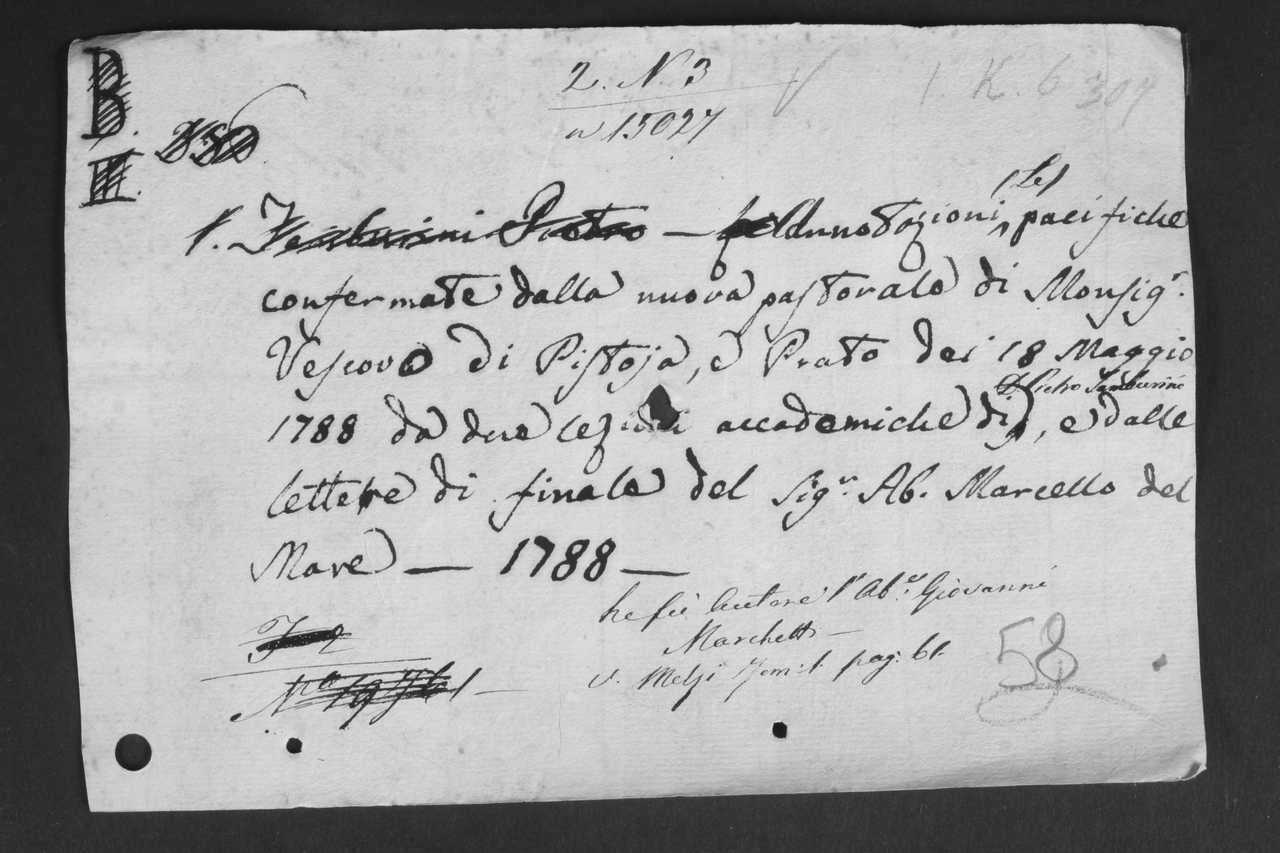 B.
III.
2. N. 3
a 15027
1. K. 6 309
1. Tamburini Pietro — Annotazioni (Le) pacifiche
confermate dalla nuova pastorale di Monsig.r
Vescovo di Pistoja, e Prato dei 18 Maggio
D. Pietro Tamburini
1788 da due lezioni accademiche di, e dalle
lettere di finale del Sig.r Ab. Marcello del
Mare — 1788 —
ne fù Autore l'Ab.e Giovanni
Marchetti —
v. Melzi Tom. 1. pag. 61.
58